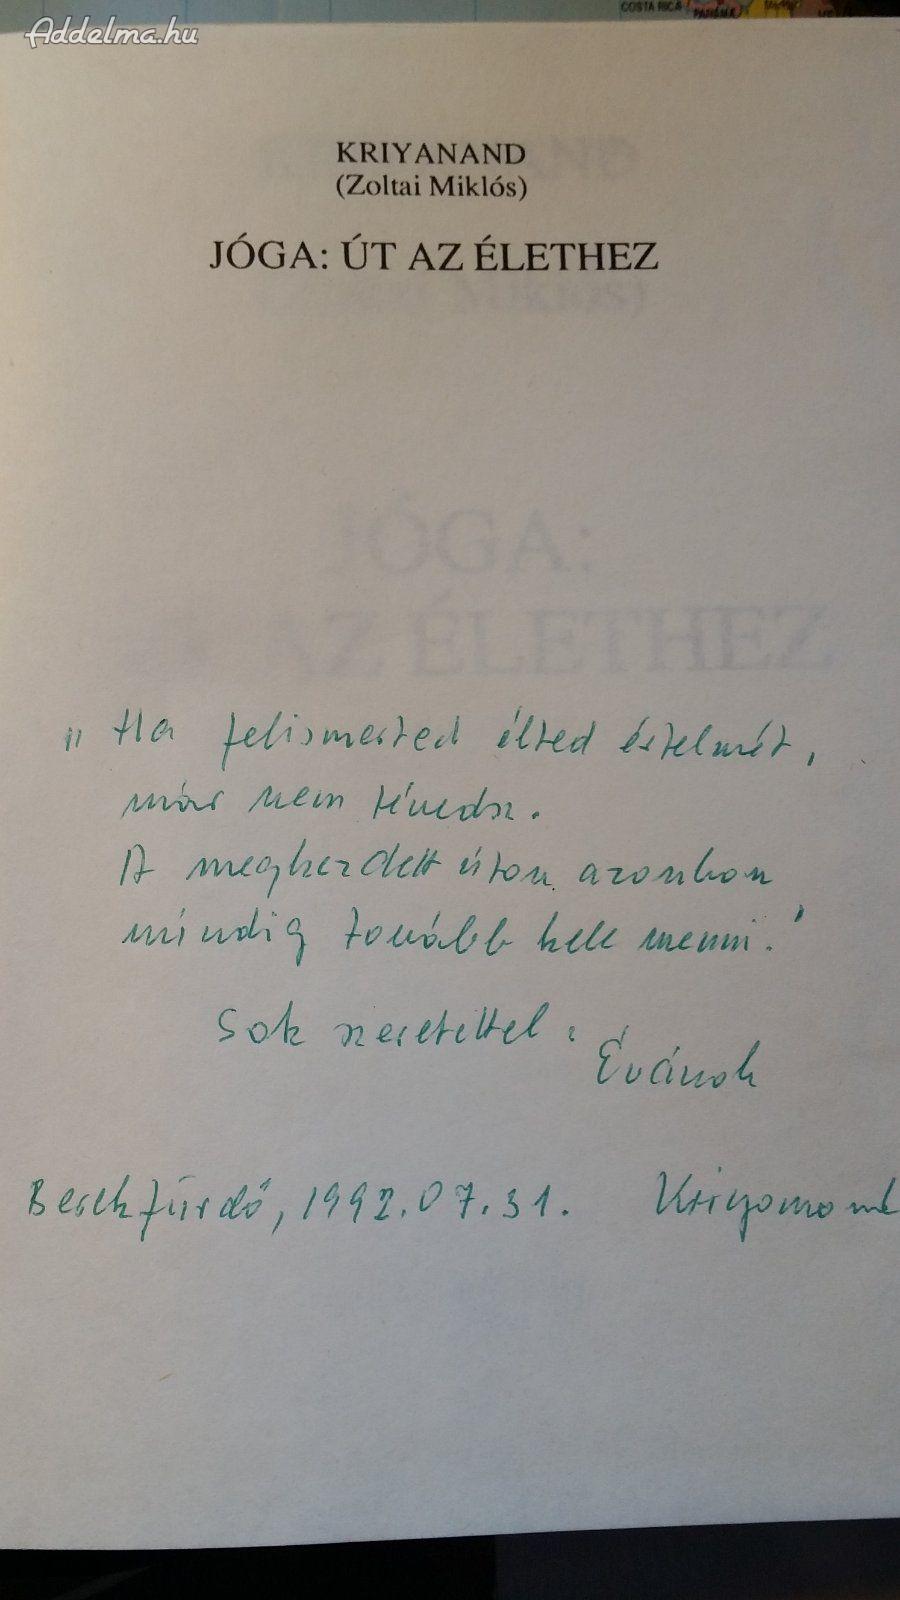 Addelma.hu
COSTA RICA
PANAMA
KRIYANAND
(Zoltai Miklós)
JÓGA: ÚT AZ ÉLETHEZ
JÓGA:
AZ ÉLETHEZ
"Ha felismerted élted értelmét,
már nem tévedsz.
A megkezdett úton azonban
mindig tovább kell menni."
Sok szeretettel:
Évának
Berekfürdő, 1992.07.31. Kriyanand